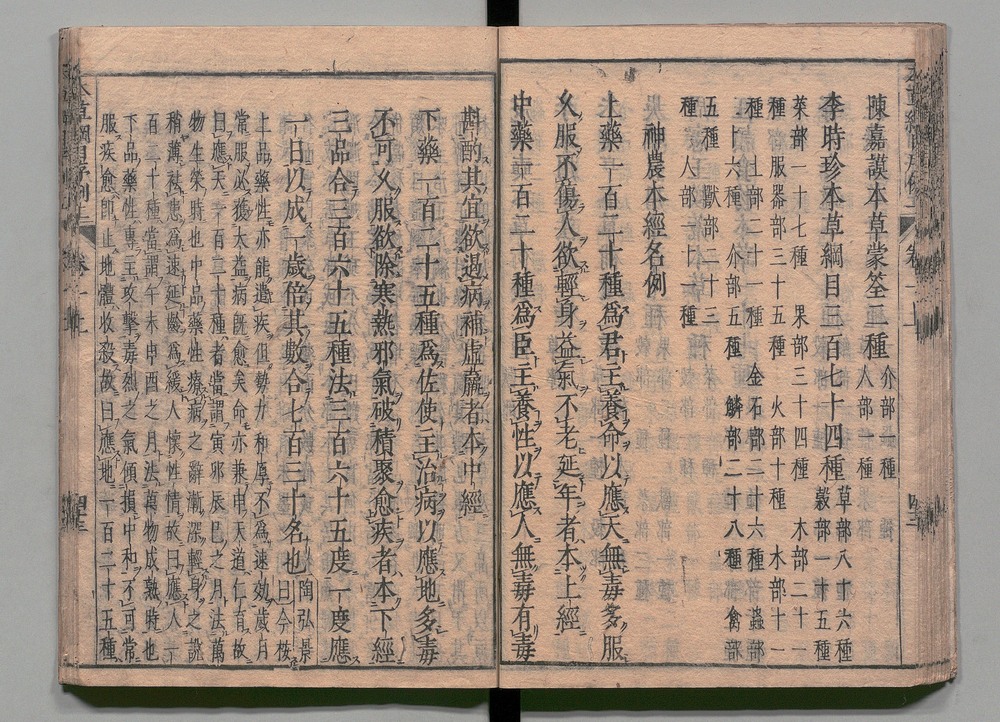 陳嘉謨本草蒙筌二種介部一種
人部一種
李時珍本草綱目三百七十四種草部八十六種
穀部一十五種
菜部一十七種 果部三十四種 木部二十一
種 服器部三十五種 火部十種 水部十一
種 土部二十一種 金石部二十六種 蟲部
二十六種 介部五種 鱗部二十八種 禽部
五種 獸部二十三
種 人部一十一種
神農本經名例
上藥一百二十種爲君主養命以應天無毒多服
久服不傷人欲輕身益氣不老延年者本上經
中藥一百二十種爲臣主養性以應人無毒有毒
斟酌其宜欲遏病補虛羸者本中經
下藥一百二十五種爲佐使主治病以應地多毒
不可久服欲除寒熱邪氣破積聚愈疾者本下經
三品合三百六十五種法三百六十五度一度應
一日以成一歲倍其數合七百三十名也陶弘景
曰今桉
上品藥性亦能遣疾但勢力和厚不爲速效歲月
常服必獲大益病旣愈矣命亦兼申天道仁育故
曰應天一百二十種者當謂寅卯辰巳之月法萬
物生榮時也中品藥性療病之辭漸深輕身之說
稍薄祛患爲速延齡爲緩人懷性情故曰應人一
百二十種當謂午未申酉之月法萬物成熟時也
下品藥性專主攻擊毒烈之氣傾損中和不可常
服疾愈卽止地體收殺故曰應地一百二十五種